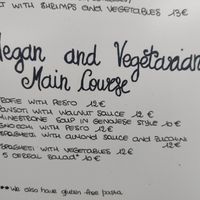 T WITH SHRIMPS AND VEGETABLES 13€
Vegan and Vegetarian
Main Course
TROFIE WITH PESTO 12€
PANSOTI WITH WALNUT SAUCE 12€
MINESTRONE SOUP IN GENOVESE STYLE 10€
GNOCCHI WITH PESTO 12€
SPAGHETTI WITH ALMOND SAUCE AND ZUCCHINI
12€
SPAGHETTI WITH VEGETABLES 12€
5 CEREAL SALAD* 10€
** We also have gluten free pasta